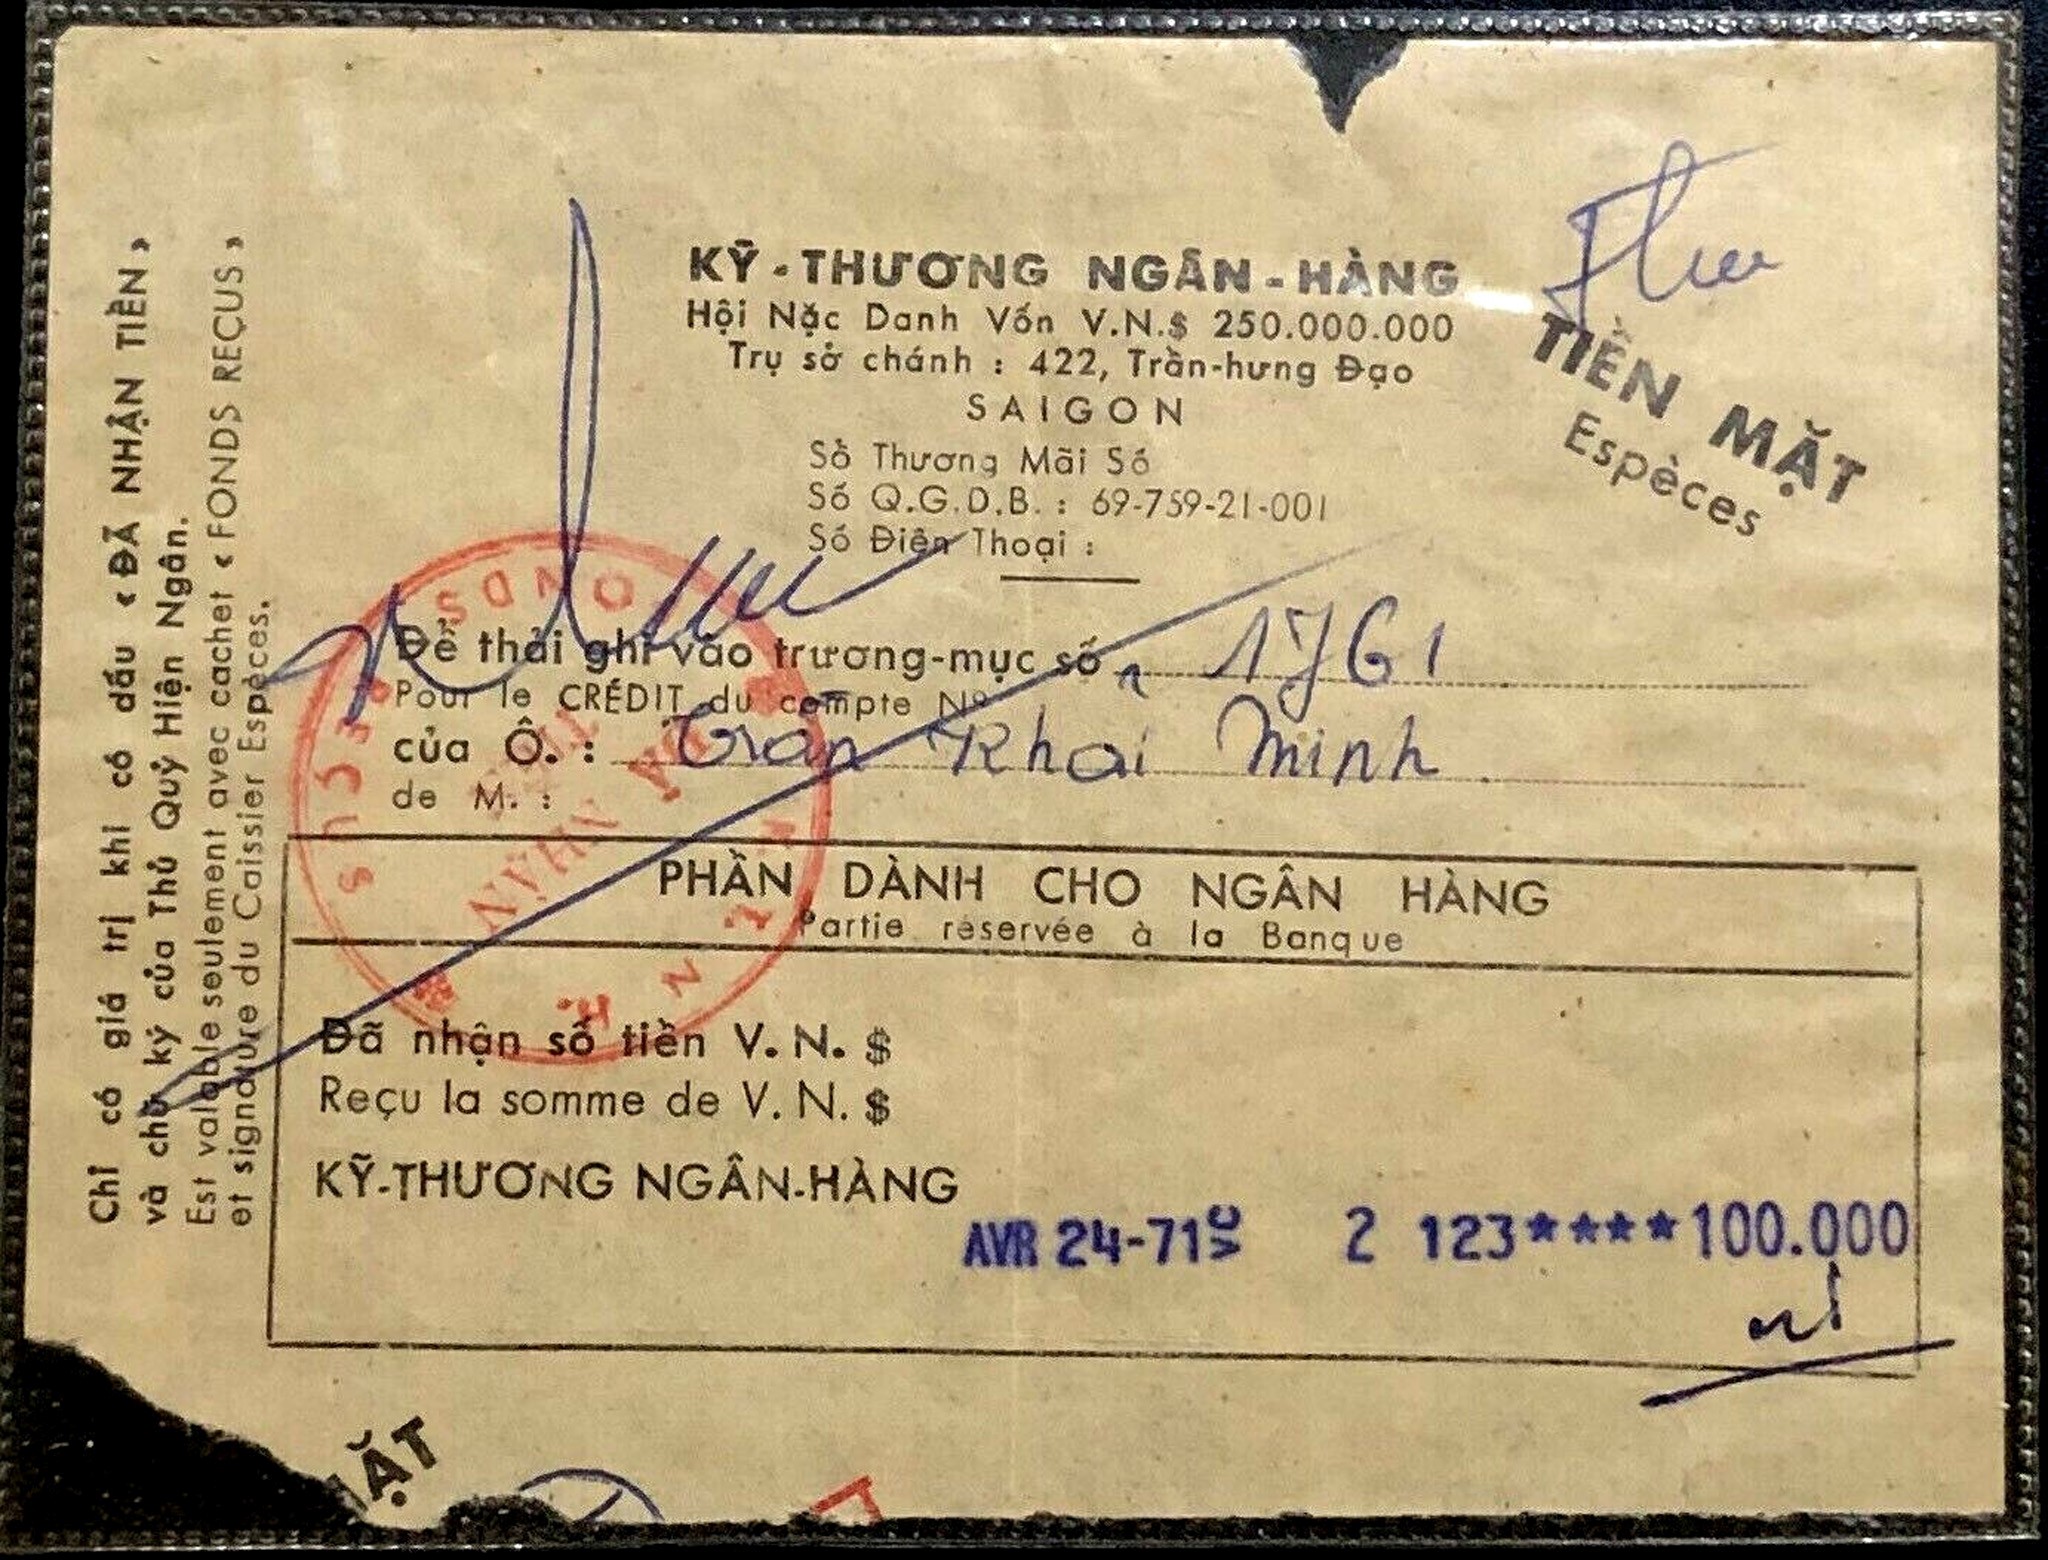 KỸ-THƯƠNG NGÂN-HÀNG
Hội Nặc Danh Vốn V.N.$ 250.000.000
Trụ sở chánh : 422, Trần-hưng Đạo
SAIGON
Số Thương Mãi Số
Số Q.G.D.B. : 69-759-21-001
Số Điện Thoại :
TIỀN MẶT
Espèces
Để thải ghi vào trương-mục số 1761
Pour le CRÉDIT du compte Nº
của Ô. : Trần Khải Minh
de M. :
PHẦN DÀNH CHO NGÂN HÀNG
Partie réservée à la Banque
Đã nhận số tiền V. N. $
Reçu la somme de V. N. $
KỸ-THƯƠNG NGÂN-HÀNG
AVR 24-71 2 123****100.000
Chỉ có giá trị khi có dấu « ĐÃ NHẬN TIỀN »
và chữ ký của Thủ Quỹ Hiện Ngân.
Est valable seulement avec cachet « FONDS REÇUS »
et signature du Caissier Espèces.
FONDS REÇUS
ĐÃ NHẬN TIỀN
MẶT